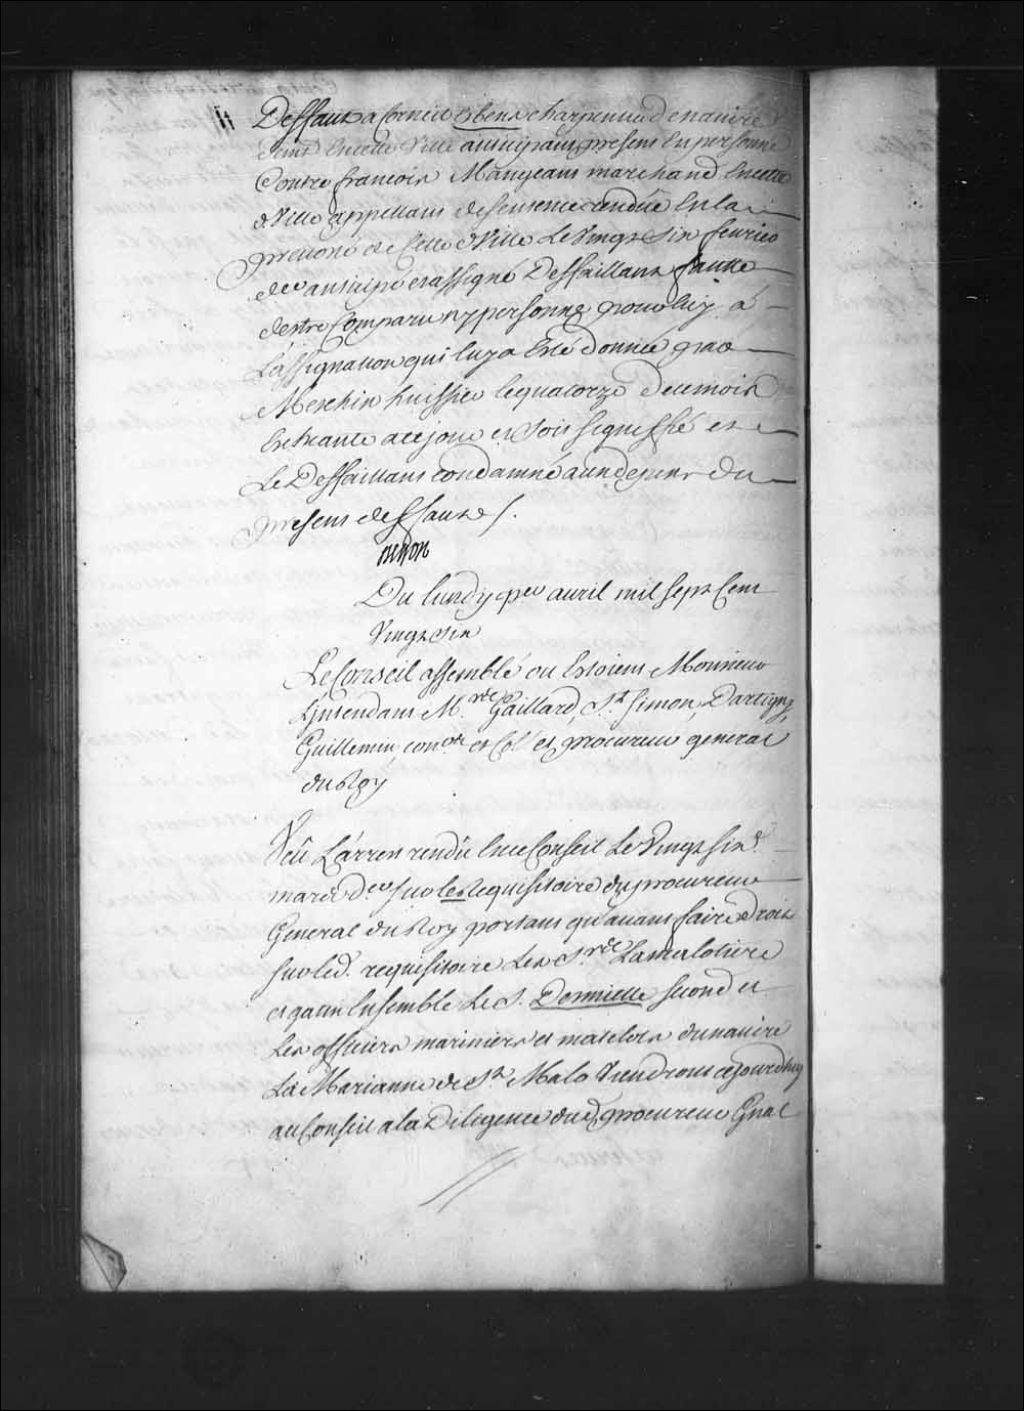 Deffaut a Corneil Ubens charpentier de navire
demt. en cette Ville anticipant present en personne
Contre francois Mangeant marchand en cette
Ville appellant de sentence rendüe en la
prevosté de Cette Ville Le Vingt Six feurier
der. anticipé et assigné Deffaillant faute
destre Comparu ny personne pour luy a
Lassignation qui luy a Esté donnée par
Meschin huissier le quatorze de ce mois
Escheante a ce jour et soit signiffié et
Le Deffaillant condamné aux depens du
present deffaut /.
Du lundy per. auril mil sept Cent
Vingt Six
Le Conseil assemblé ou Estoient Monsieur
Lintendant Mrs. Gaillard, St. Simon, Dartigny,
Guillemin, coners. et procureur general
du Roy
Veû L'arrest rendû en ce Conseil Le Vingt six
mars der. sur le requisitoire du procureur
General du Roy portant qu'auant faire droit
sur led. requisitoire Les Srs. de Lamalotiere
et gatin Ensemble Le S. Dennielle second et
Les officiers mariniers et matelots du nauire
La Marianne de St. Malo Viendront cejourdhuy
au Conseil a la Diligence dud. procureur Gnal